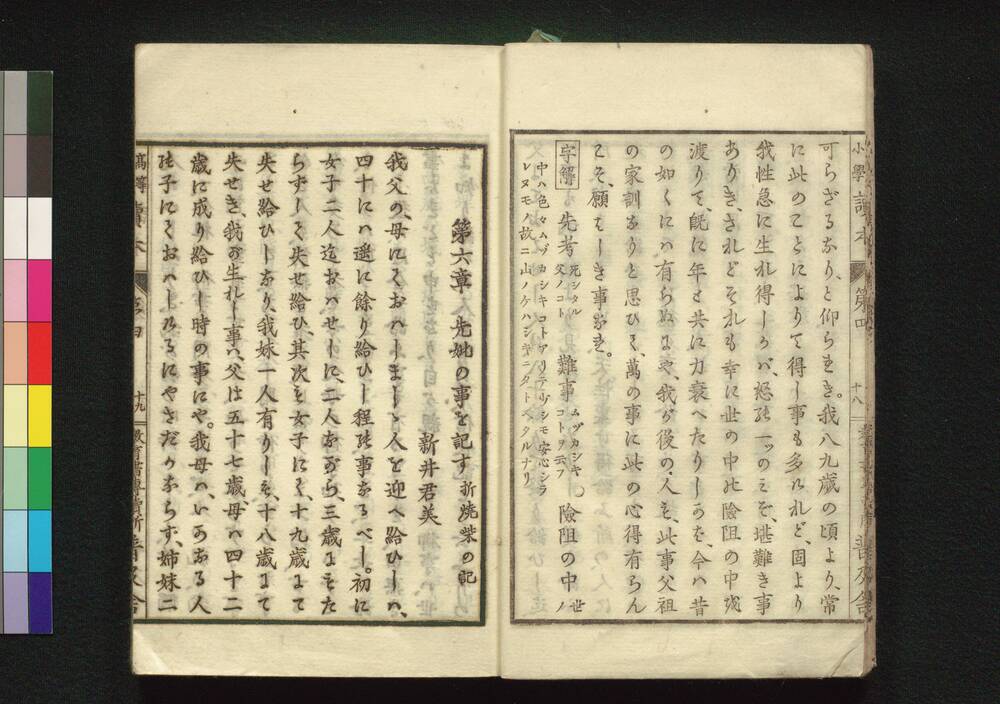 小學讀本 第四 十八 普及舎
可らざるなりと仰られき。我八九歳の頃より、常
に此のことによりて得し事も多けれど、固より
我性急に生れ得しかバ、怒の一ッのミぞ、堪難き事
ありきされどそれも幸に世の中の險阻の中を
渡りて、既に年と共に力衰へたりしかを、今ハ昔
の如くにハ有らぬにや、我が後の人も、此事父祖
の家訓なりと思ひて、萬の事に此の心得有らん
こそ、願はしき事なれ。
字解 先考 死シタル父ノコト 難事 ムヅカシキコトヲ云フ 險阻の中 世ノ
中ハ色々ムヅカシキコトアリテ少シモ安心シラ
レヌモノ故ニ山ノケハシキニタトヘタルナリ
第六章 先妣の事を記す 折焼柴の記
新井君美
我父の、母にておハしましゝ人を迎へ給ひしハ、
四十にハ遙に餘り給ひし程の事なるべし。初に
女子二人迄おハせしに、二人ながら、三歳にもた
らずして失せ給ひ、其次も女子にて、十九歳にて
失せ給ひしなり、我妹一人有りしも、十八歳にて
失せき、我が生れし事ハ、父は五十七歳、母ハ四十二
歳に成り給ひし時の事にや。我母ハ、いかなる人
の子にておハしけるにやさだかならず、姉妹二
高等讀本 卷四 十九 教育書專賣所 普及舎